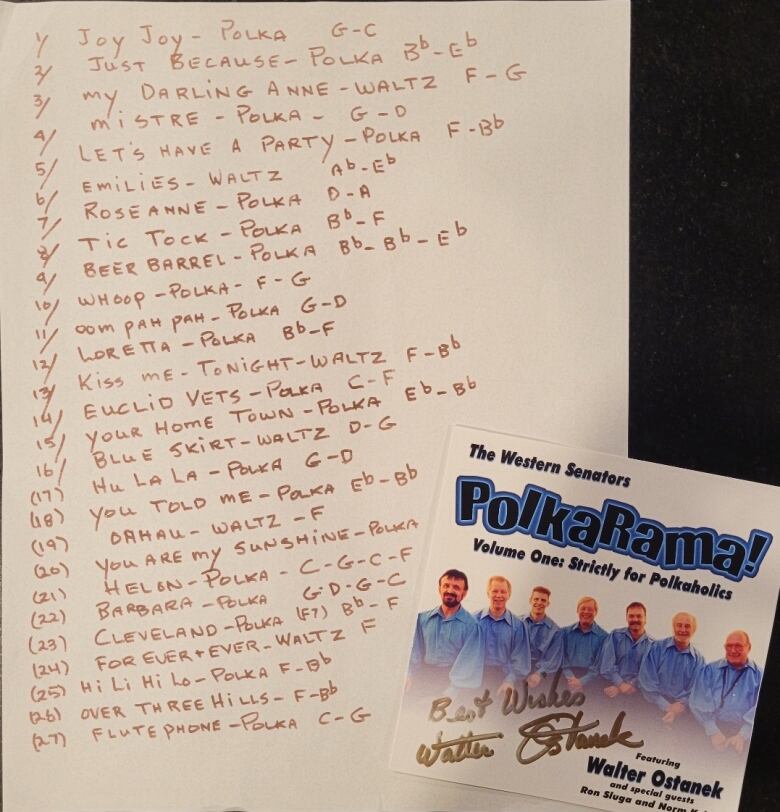 1/ JOY JOY - POLKA G-C
2/ JUST BECAUSE - POLKA Bb-Eb
3/ MY DARLING ANNE - WALTZ F-G
4/ MISTRE - POLKA - G-D
5/ LET'S HAVE A PARTY - POLKA F-Bb
6/ EMILIES - WALTZ Ab-Eb
7/ ROSEANNE - POLKA D-A
8/ TIC TOCK - POLKA Bb-F
9/ BEER BARREL - POLKA Bb-Bb-Eb
10/ WHOOP - POLKA - F-G
11/ OOM PAH PAH - POLKA G-D
12/ LORETTA - POLKA Bb-F
13/ KISS ME - TONIGHT - WALTZ F-Bb
14/ EUCLID VETS - POLKA C-F
15/ YOUR HOME TOWN - POLKA Eb-Bb
16/ BLUE SKIRT - WALTZ D-G
(17) HU LA LA - POLKA G-D
(18) YOU TOLD ME - POLKA Eb-Bb
(19) OAHAU - WALTZ - F
(20) YOU ARE MY SUNSHINE - POLKA
(21) HELON - POLKA - C-G-C-F
(22) BARBARA - POLKA G-D-G-C
(23) CLEVELAND - POLKA (F7) Bb-F
(24) FOREVER + EVER - WALTZ F
(25) Hi Li Hi Lo - POLKA F-Bb
(26) OVER THREE HILLS - F-Bb
(27) FLUTEPHONE - POLKA C-G
The Western Senators
PolkaRama!
Volume One: Strictly for Polkaholics
Best Wishes
Walter Ostanek
Featuring
Walter Ostanek
and special guests
Ron Sluga and Norm